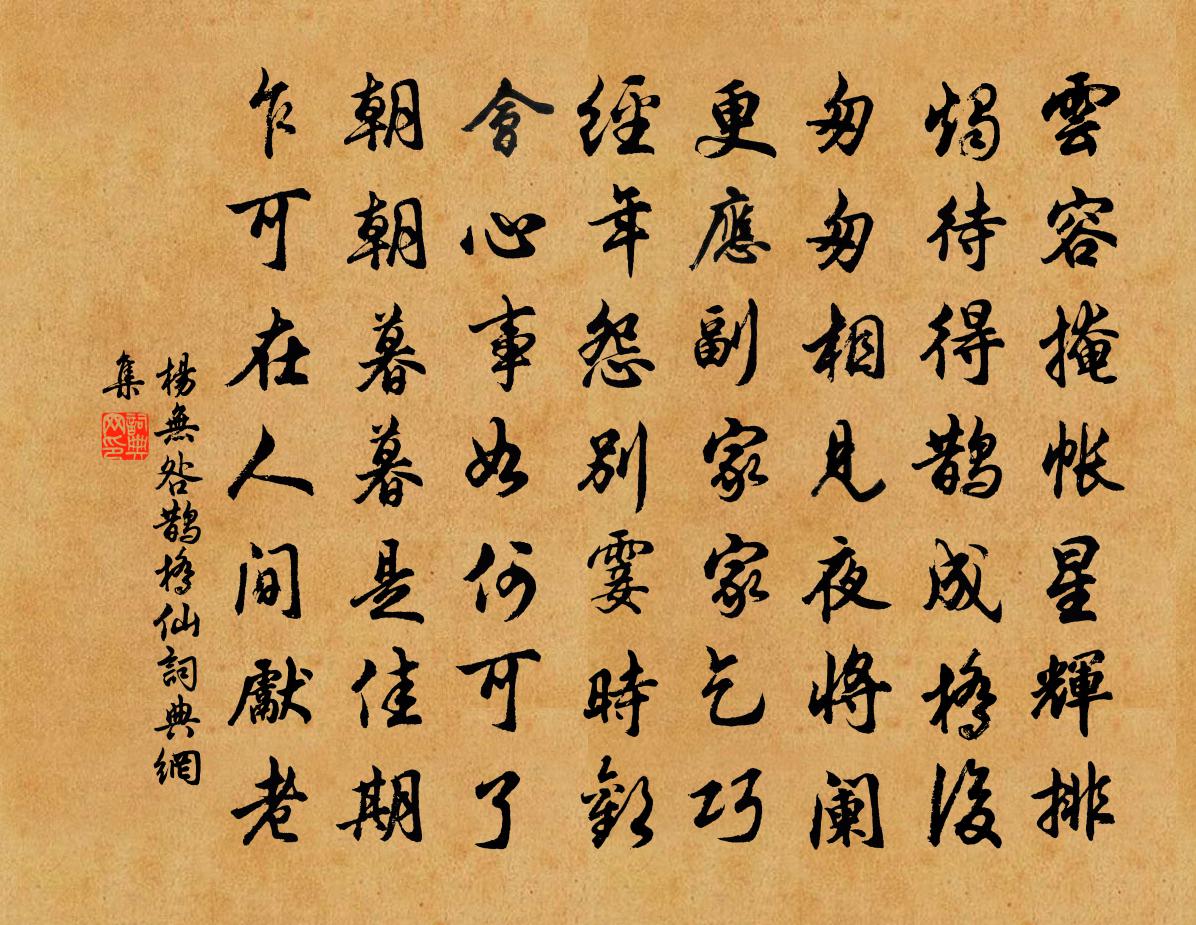 雲容掩帳星輝排
燭待得鵲成橋後
匆匆相見夜將闌
更應副家家乞巧
經年怨別霎時歡
會心事如何可了
朝朝暮暮是佳期
乍可在人間獻老
楊無咎鵲橋仙詞典網
集
詞典网印